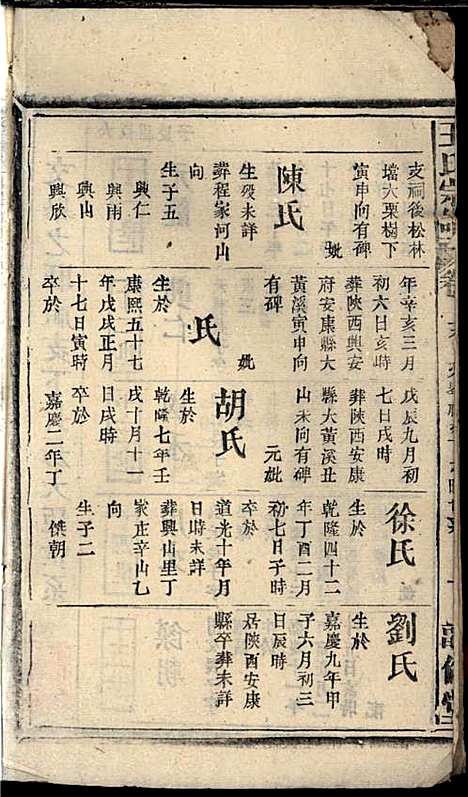 支祠後松林
壋大栗樹下
寅申向有碑
妣
陳氏
生殁未詳
葬程家河山
向
生子五
興仁
興雨
興山
興欣
年辛亥三月
初六日亥時
葬陝西興安
府安康縣大
黃溪寅申向
有碑
妣
氏
生於
康熙五十七
年戊戌正月
十七日寅時
卒於
戊辰九月初
七日戌時
葬陝西安康
縣大黃溪丑
山未向有碑
元妣
胡氏
生於
乾隆七年壬
戌十月十一
日戌時
卒於
嘉慶二年丁
徐氏
生於
乾隆四十二
年丁酉二月
初七日子時
卒於
道光十年月
日時未詳
葬興山里丁
家庄辛山乙
向
生子二
傑朝
劉氏
生於
嘉慶九年甲
子六月初三
日辰時
居陝西安康
縣卒葬未詳